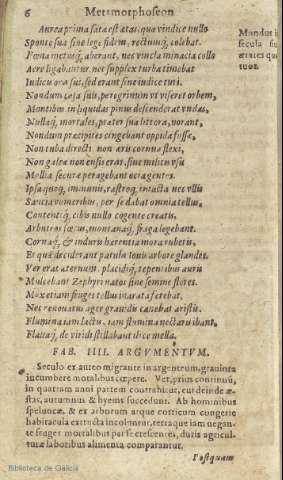 6 Metamorphoseon
Aurea prima sata est ætas, quæ vindice nullo
Sponte sua sine lege fidem, rectumq́, colebat.
Pœna metusq́, aberant, nec vincla minacia collo
Ære ligabantur nec supplex turba timebat
Iudicis ora sui, sed erant sine iudice tuti.
Nondum cæsa suis, peregrinum vt viseret orbem,
Montibus in liquidas pinus descenderat vndas,
Nullaq́, mortales, præter sua littora, norant,
Nondum præcipites cingebant oppida fossæ,
Non tuba directi non æris cornua flexi,
Non galeæ non ensis erat, sine militis vsu
Mollia securæ peragebant otia gentes.
Ipsa quoq́, immunis, rastroq́, intacta nec vllis
Saucia vomeribus, per se dabat omnia tellus,
Contentiq́, cibis nullo cogente creatis,
Arbuteos fœtus, montanaq́, fraga legebant.
Cornaq́, & in duris hærentia mora rubetis,
Et quæ deciderant patula Iouis arbore glandes.
Ver erat æternum, placidiq́, tepentibus auris
Mulcebant Zephyri natos sine semine flores.
Mox etiam fruges tellus inarata ferebat.
Nec renouatus ager grauidis canebat aristis.
Flumina iam lactis, iam flumina nectaris ibant,
Flauaq́, de viridi stillabant ilice mella.
Mundus i
secula su
ætates qu
tuor.
FAB. IIII. ARGVMENTVM.
Seculo ex aureo migrante in argenteum, grauiora
incumbere mortalibus cœpere. Ver, prius continuũ,
in quatuor anni partem coarctabitur, cui deinde æ-
stas, autumnus & hyems succedunt. Ab hominibus
speluncæ, & ex arborum atque corticum congerie
habitacula extructa incoluntur, terraque iam negan-
te fruges mortalibus per se crescentes, duris agricul-
turæ laboribus alimenta comparantur.
Postquam
Biblioteca de Galicia